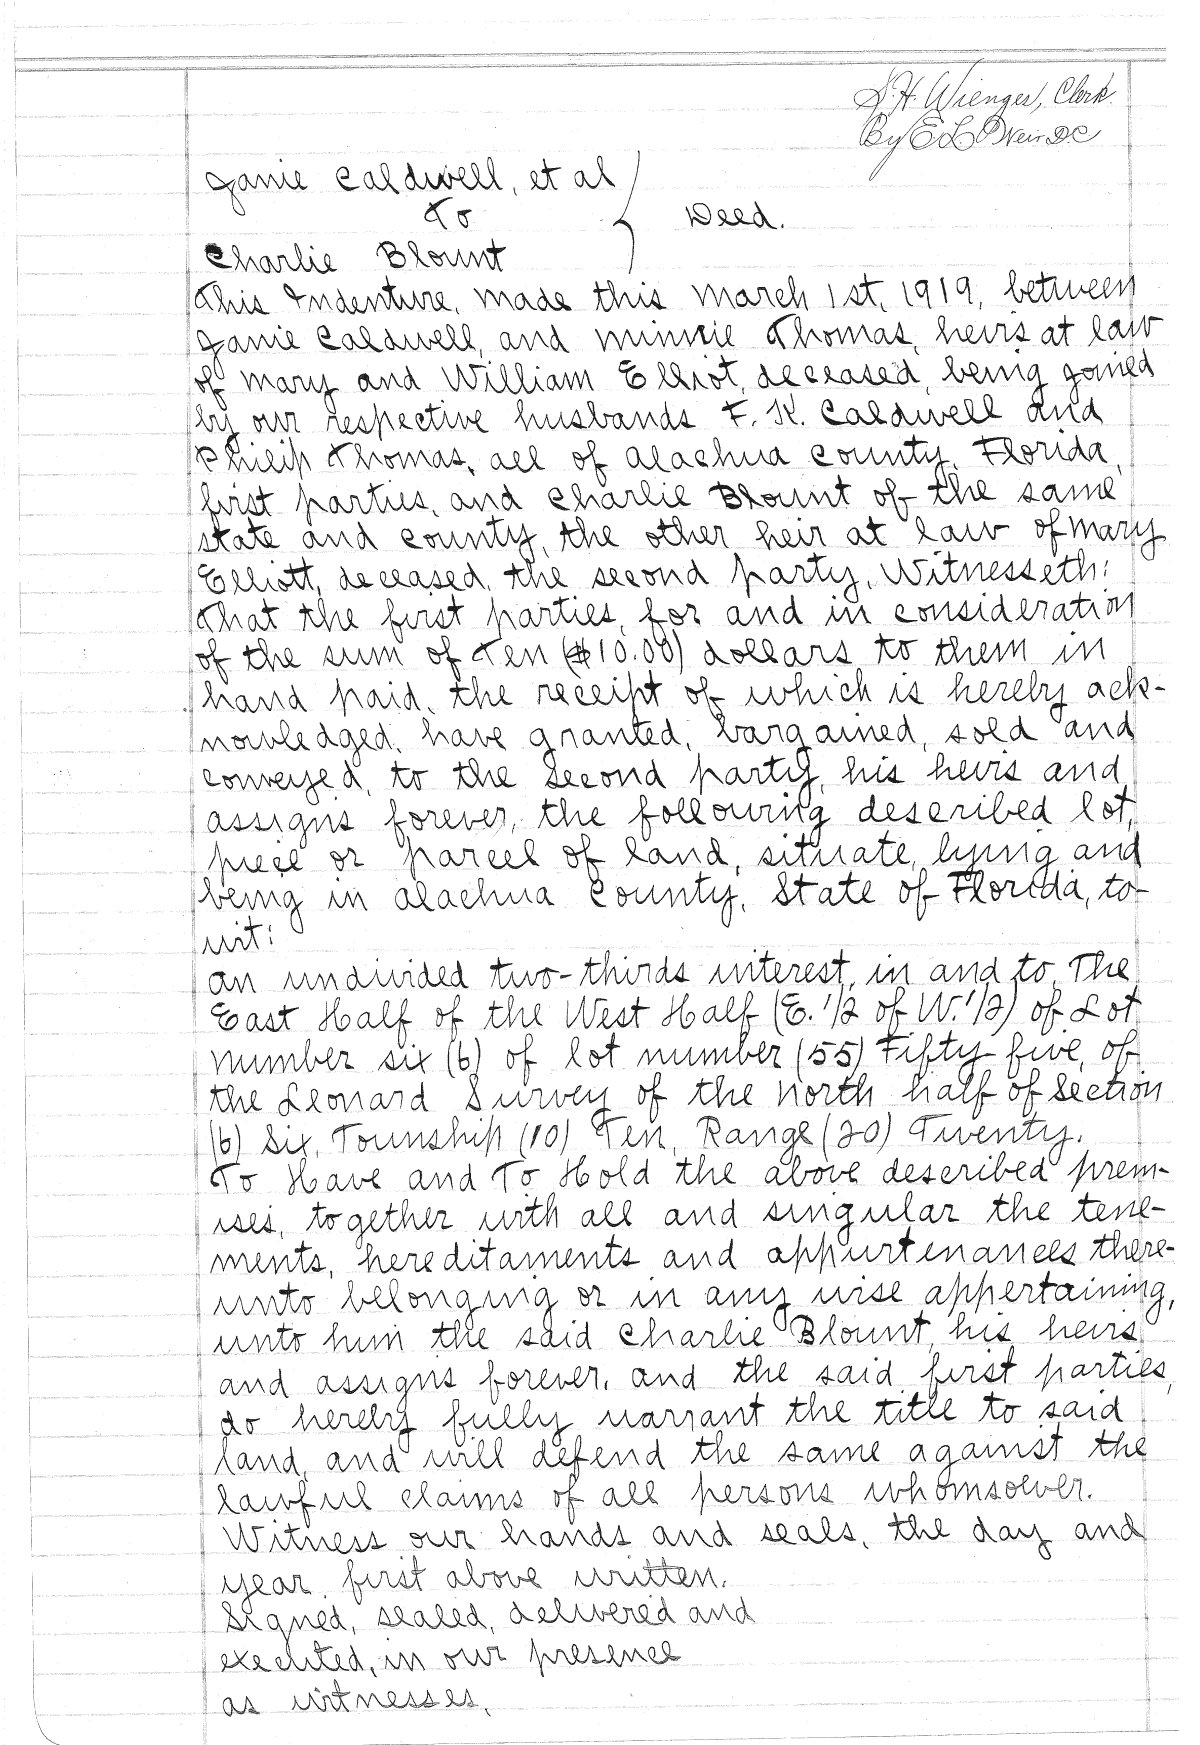 S. H. Wienges, Clerk.
By E L Weir D.C
Janie Caldwell, et al
To } Deed.
Charlie Blount
This Indenture, made this March 1st, 1919, between
Janie Caldwell, and Minnie Thomas, heirs at law
of Mary and William Elliot, deceased, being joined
by our respective husbands F. K. Caldwell and
Philip Thomas, all of Alachua County, Florida,
first parties, and Charlie Blount of the same
state and county, the other heir at law of Mary
Elliott, deceased, the second party, Witnesseth:
That the first parties, for and in consideration
of the sum of Ten ($10.00) dollars to them in
hand paid, the receipt of which is hereby ack-
nowledged, have granted, bargained, sold and
conveyed, to the second party, his heirs and
assigns forever, the following described lot,
piece or parcel of land, situate, lying and
being in Alachua County, State of Florida, to-
wit:
An undivided two-thirds interest, in and to, The
East Half of the West Half (E. 1/2 of W. 1/2) of Lot
number six (6) of lot number (55) Fifty five, of
the Leonard Survey of the North half of Section
(6) Six, Township (10) Ten, Range (20) Twenty.
To Have and To Hold the above described prem-
ises, together with all and singular the tene-
ments, hereditaments and appurtenances there-
unto belonging or in any wise appertaining,
unto him the said Charlie Blount, his heirs
and assigns forever. And the said first parties,
do hereby fully warrant the title to said
land, and will defend the same against the
lawful claims of all persons whomsoever.
Witness our hands and seals, the day and
year first above written.
Signed, sealed, delivered and
executed, in our presence
as witnesses.